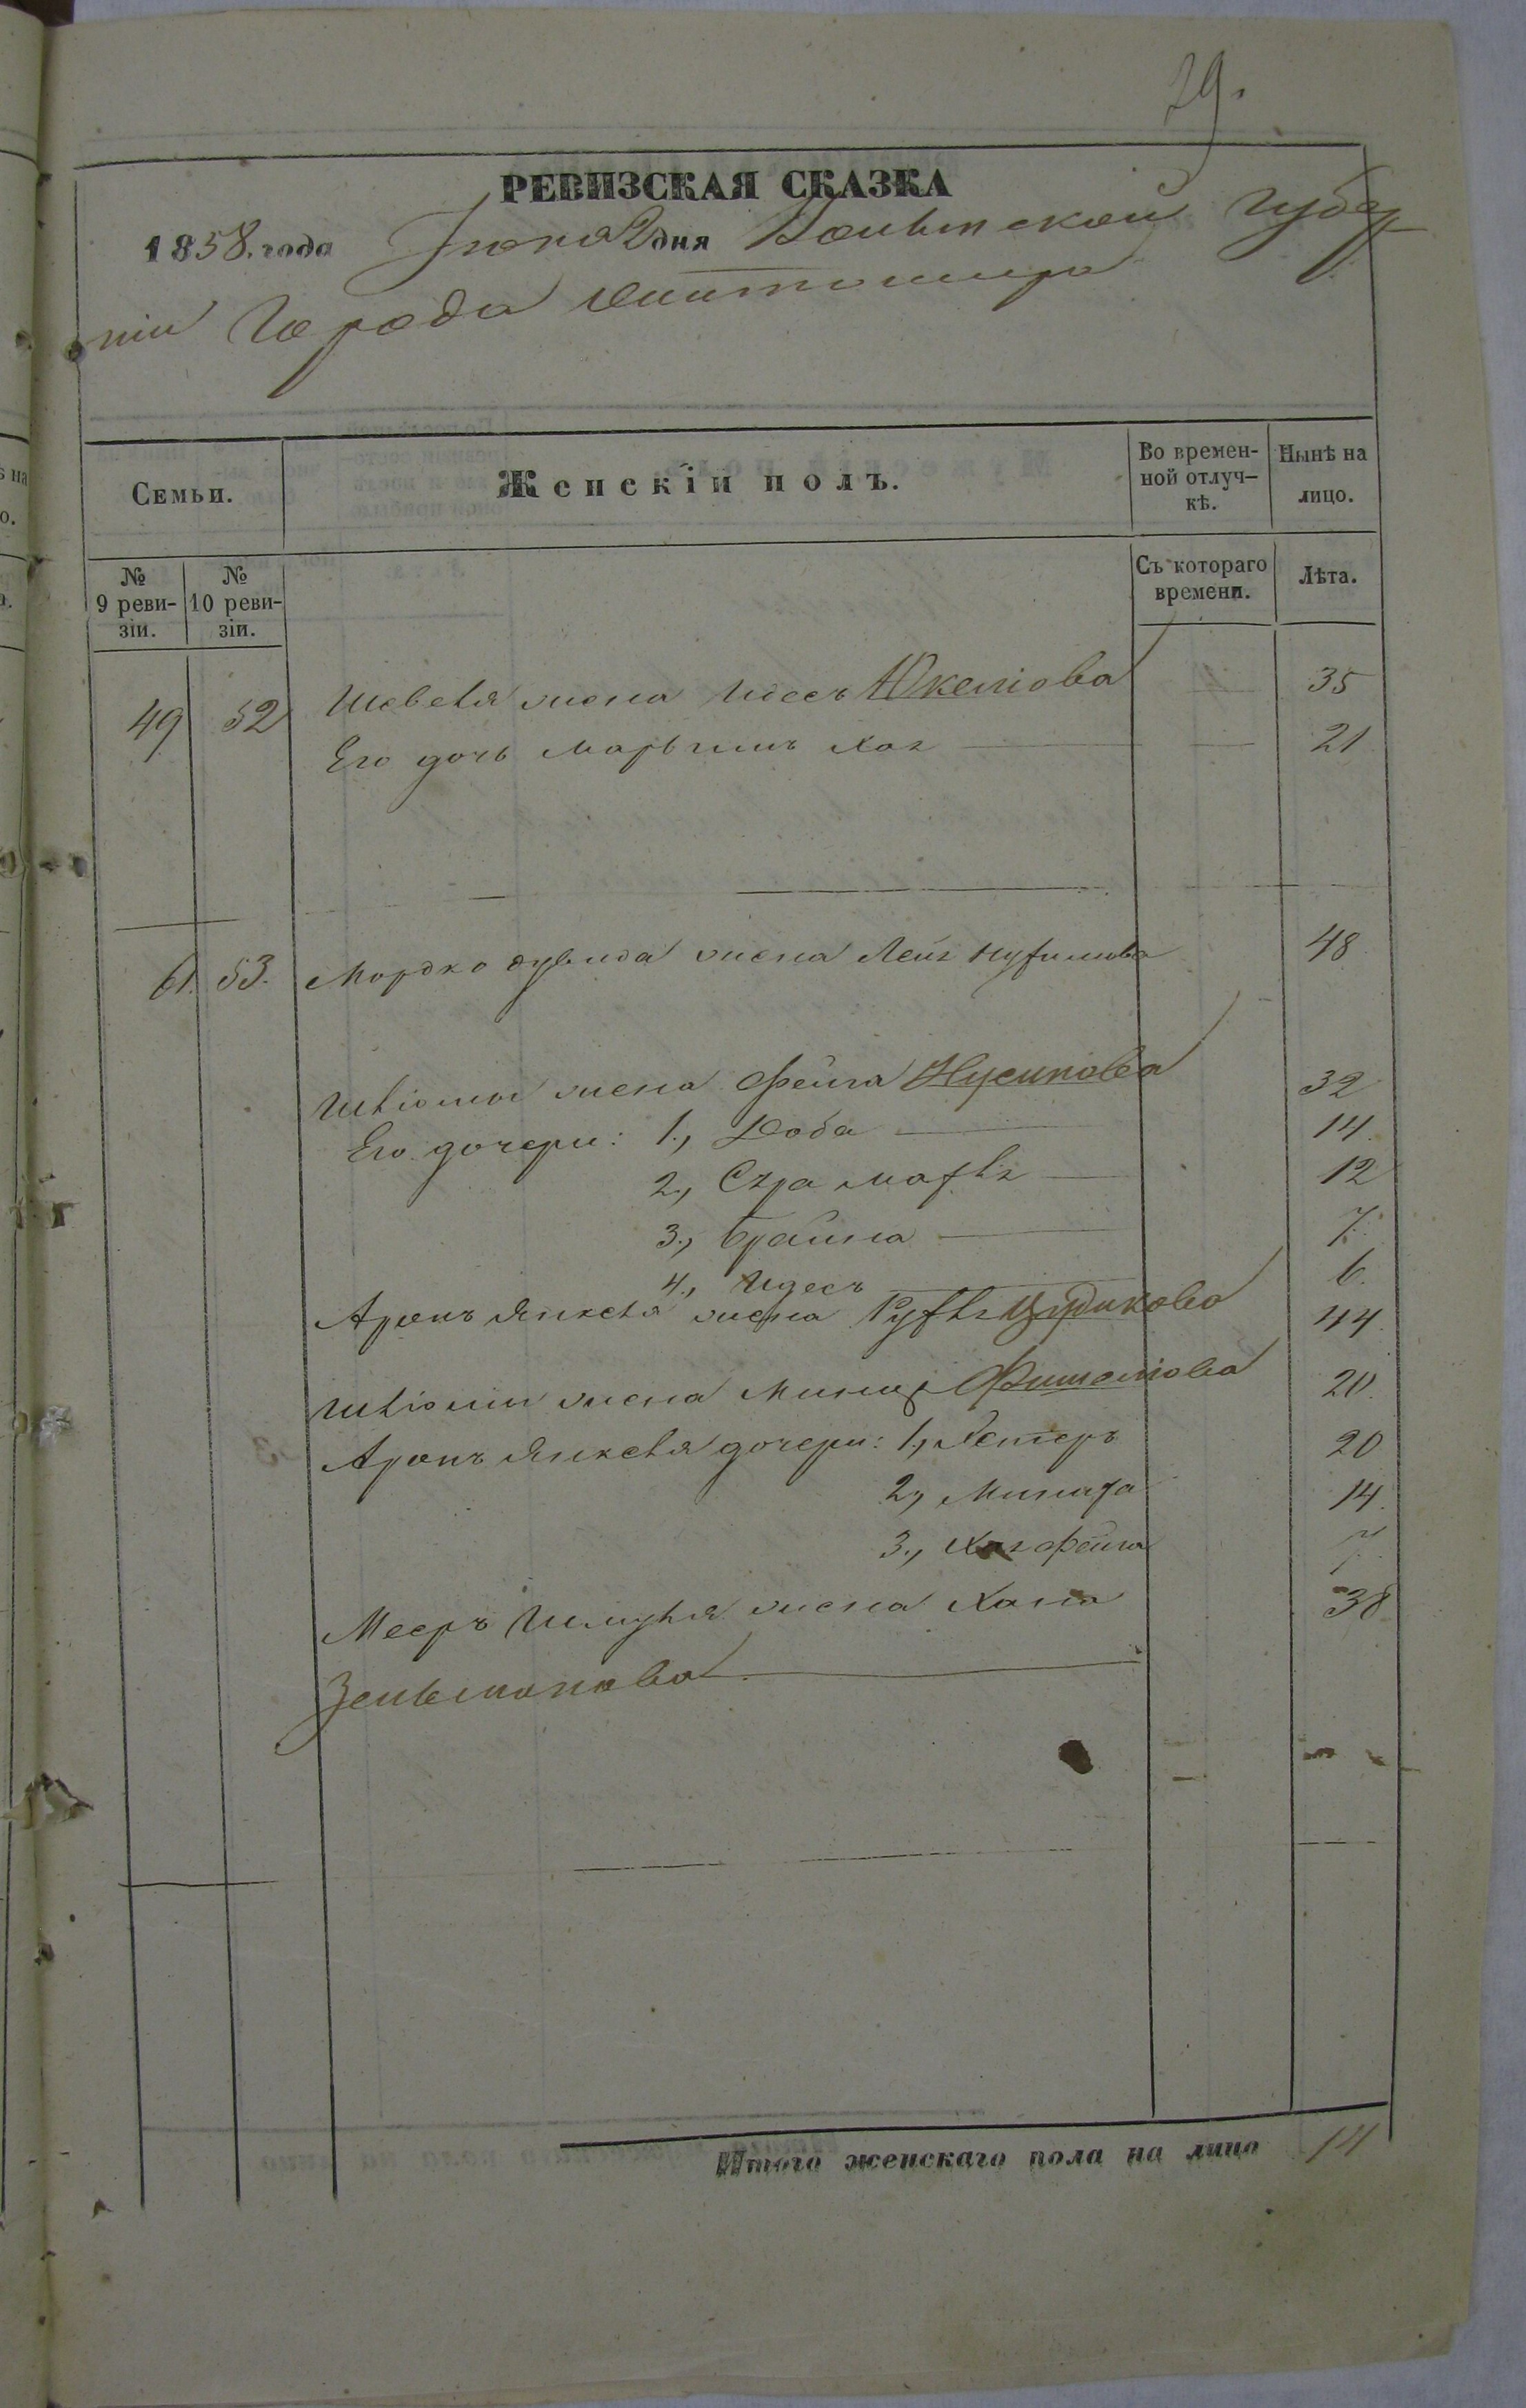 29.
РЕВИЗСКАЯ СКАЗКА
1858. года Июня 2 дня Волынской Губер
ніи Города Житомира
Семьи.
Женскій полъ.
Во времен-
ной отлуч-
кѣ.
Нынѣ на
лицо.
№
9 реви-
зіи.
№
10 реви-
зіи.
Съ котораго
времени.
Лѣта.
49 52 жена Идесъ Юкелiова 35
Его дочь Марьямъ Хая 21
61. 53. Мордко Дувида жена Лея 48
жена Фейга Нусинова 32
Его дочери: 1., Доба 14.
2., Сура 12
3., Брайна 7.
4., Идесъ 6.
Аронъ Янкеля жена 44.
жена Фишелiова 20.
Аронъ Янкеля дочери: 1., Естеръ 20
2., 14.
3., Хая Фейга 7
Мееръ жена Хана 38
Зельманова
Итого женскаго пола на лицо 14